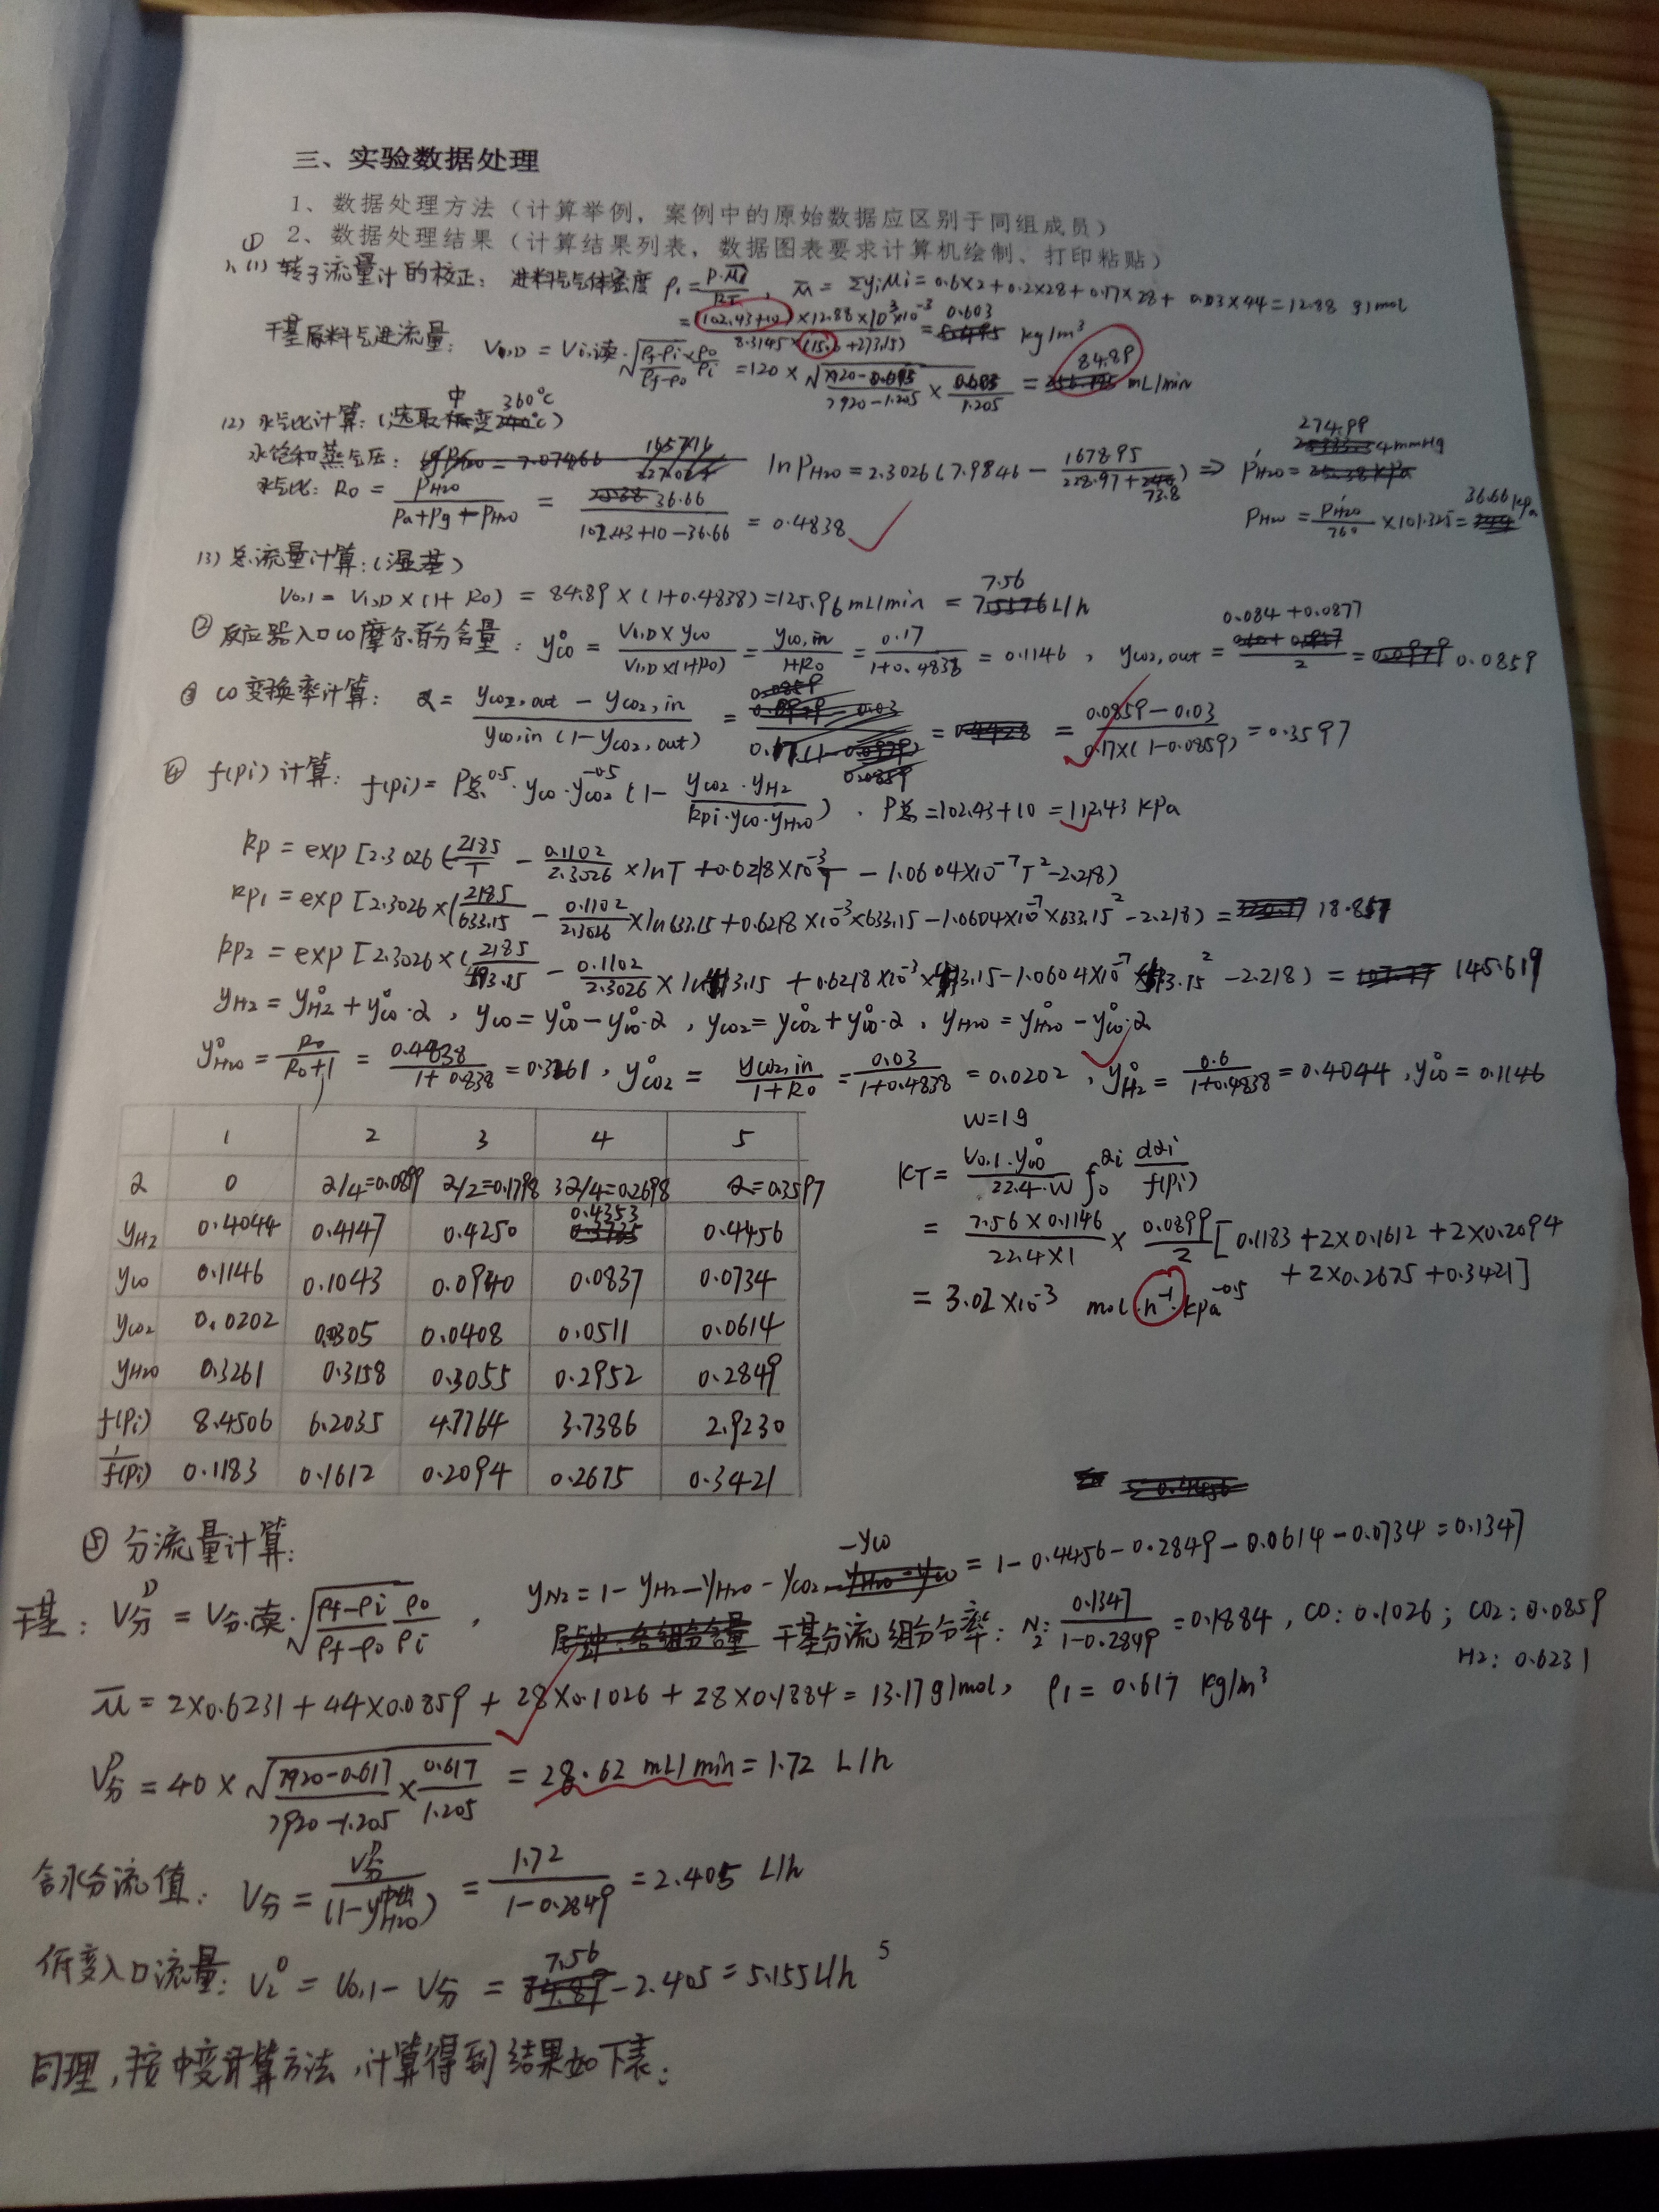 三、实验数据处理
1、数据处理方法（计算举例，案例中的原始数据应区别于同组成员）
2、数据处理结果（计算结果列表，数据图表要求计算机绘制、打印粘贴）
① 1、(1) 转子流量计的校正： 进料气气体密度 ρ₁ = P·M̄/RT , M̄ = ΣyiMi = 0.6×2+0.2×28+0.17×28+0.03×44 = 12.88 g/mol
= (102.43+10)×12.88×10³×10⁻³ / 8.3145×(15.0+273.15) = 0.603 kg/m³
干基原料气进流量： V₀,D = Vi,读·√((ρf-ρi)/(ρf-ρ0) × ρ0/ρi) = 120×√((7920-0.603)/(7920-1.205) × 0.603/1.205) = 84.89 mL/min
(2) 水气比计算：(选取中变360℃)
水饱和蒸气压： ln PH2O = 2.3026(7.9846 - 1678.95/(228.97+73.8)) ⇒ P'H2O = 274.99 mmHg
水气比：R0 = PH2O/(Pa+Pg-PH2O) = 36.66/(102.43+10-36.66) = 0.4838
PH2O = P'H2O/760 ×101.325 = 36.66 kPa
(3) 总流量计算：(湿基)
V0,1 = V1,D×(1+R0) = 84.89×(1+0.4838) = 125.96 mL/min = 7.56 L/h
② 反应器入口CO摩尔百分含量： y°CO = V1,D×yCO/V1,D×(1+R0) = yCO,in/1+R0 = 0.17/1+0.4838 = 0.1146 , yCO2,out = (0.084+0.0877)/2 = 0.0859
③ CO变换率计算： α = (yCO2,out - yCO2,in)/(yCO,in(1-yCO2,out)) = (0.0859-0.03)/(0.17×(1-0.0859)) = 0.3597
④ f(Pi)计算： f(Pi) = P总^0.5·yCO·yCO2^-0.5 (1 - yCO2·yH2/(kpi·yCO·yH2O)) , P总 = 102.43+10 = 112.43 kPa
kp = exp[2.3026(2185/T - 0.1102/2.3026 × lnT + 0.6218×10⁻³T - 1.0604×10⁻⁷T² - 2.218)
kp1 = exp[2.3026×(2185/633.15 - 0.1102/2.3026 ×ln633.15 + 0.6218×10⁻³×633.15 - 1.0604×10⁻⁷×633.15² - 2.218) = 18.857
kp2 = exp[2.3026×(2185/493.15 - 0.1102/2.3026 × ln493.15 + 0.6218×10⁻³×493.15 - 1.0604×10⁻⁷×493.15² - 2.218) = 145.619
yH2 = y°H2 + y°CO·α , yCO = y°CO - y°CO·α , yCO2 = y°CO2 + y°CO·α , yH2O = y°H2O - y°CO·α
y°H2O = R0/R0+1 = 0.4838/1+0.838 = 0.3261 , y°CO2 = yCO2,in/1+R0 = 0.03/1+0.4838 = 0.0202 , y°H2 = 0.6/1+0.4838 = 0.4044 , y°CO = 0.1146
1 2 3 4 5
α 0 α/4=0.0899 α/2=0.1798 3α/4=0.2698 α=0.3597
yH2 0.4044 0.4147 0.4250 0.4353 0.4456
yCO 0.1146 0.1043 0.0940 0.0837 0.0734
yCO2 0.0202 0.0305 0.0408 0.0511 0.0614
yH2O 0.3261 0.3158 0.3055 0.2952 0.2849
f(Pi) 8.4506 6.2035 4.7764 3.7386 2.9230
1/f(Pi) 0.1183 0.1612 0.2094 0.2675 0.3421
W=1g
KT = V0,1·y°CO/22.4·W ∫₀^αi dαi/f(Pi)
= 7.56×0.1146/22.4×1 × 0.0899/2 [0.1183+2×0.1612+2×0.2094
+2×0.2675+0.3421]
= 3.02×10⁻³ mol·h⁻¹·kPa^-0.5
⑤ 分流量计算：
yN2 = 1 - yH2 - yH2O - yCO2 - yCO = 1-0.4456-0.2849-0.0614-0.0734 = 0.1347
干基：V分^D = V分,读·√((ρf-ρi)/(ρf-ρ0) ρ0/ρi) , 干基分流组分分率：N2: 0.1347/1-0.2849 = 0.1884 , CO: 0.1026 ; CO2: 0.0859
H2: 0.6231
M̄ = 2×0.6231+44×0.0859+28×0.1026+28×0.1884 = 13.17 g/mol, ρ1 = 0.617 kg/m³
V分^D = 40×√((7920-0.617)/(7920-1.205) × 0.617/1.205) = 28.62 mL/min = 1.72 L/h
含水分流值： V分 = V分^D/(1-y H2O中出) = 1.72/1-0.2849 = 2.405 L/h
低变入口流量：V2° = V0,1 - V分 = 7.56 - 2.405 = 5.155 L/h
5
同理，按中变计算方法，计算得到结果如下表：